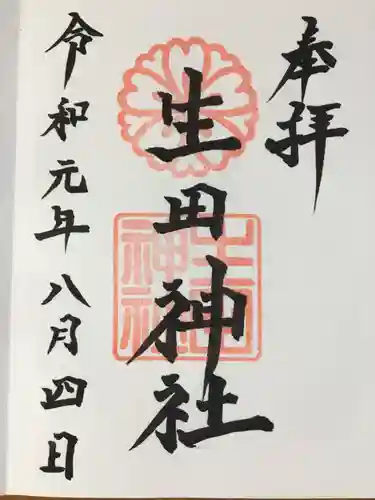 奉拝
生田神社
令和元年八月四日
生田神社